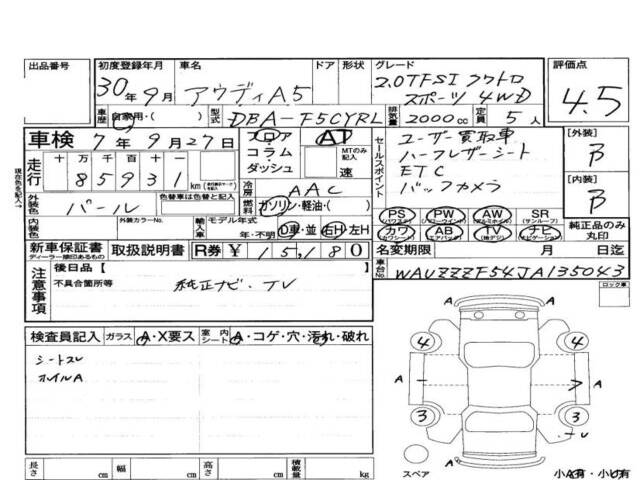 出品番号 初度登録年月 車名 ドア 形状 グレード 評価点
30年9月 アウディA5 2.0TFSI クワトロ
スポーツ 4WD 4.5
車歴 自家用・( ) 型式 DBA-F5CYRL 排気量 2000cc 定員 5人
車検 7年9月27日 フロア AT
コラム
ダッシュ MTのみ記入 速
セールスポイント ユーザー買取車
ハーフレザーシート
ETC
バックカメラ
[外装] B
現在色を記入→ 走行 十万千百十 85931 km
冷房 AAC
[内装] B
外装色 パール 色替車は色替と記入
燃料 ガソリン・軽油・( )
PS (パワステ) PW (パワーウインド) AW (アルミホイル) SR (サンルーフ)
カワ (カワシート) AB (エアバッグ) TV (地デジ) ナビ (ナビゲーション)
純正品のみ丸印
内装色 外装カラーNo. 輸入車 モデル年式 年・不明 D車・並 右H・左H
新車保証書 ディーラー捺印あるもの 取扱説明書 R券 ¥15,180
名変期限 月 日迄
車台No. WAUZZZF54JA135043
注意事項 後日品【 】
不具合箇所等 純正ナビ・TV
ロック車
検査員記入 ガラス A・X要ス 室内シート A・コゲ・穴・汚れ・破れ
シートスレ
ホイルA
4 4
A A A
3 3
A
スペア 小A有・小U有
長さ cm 幅 cm 高さ cm 積載量 kg